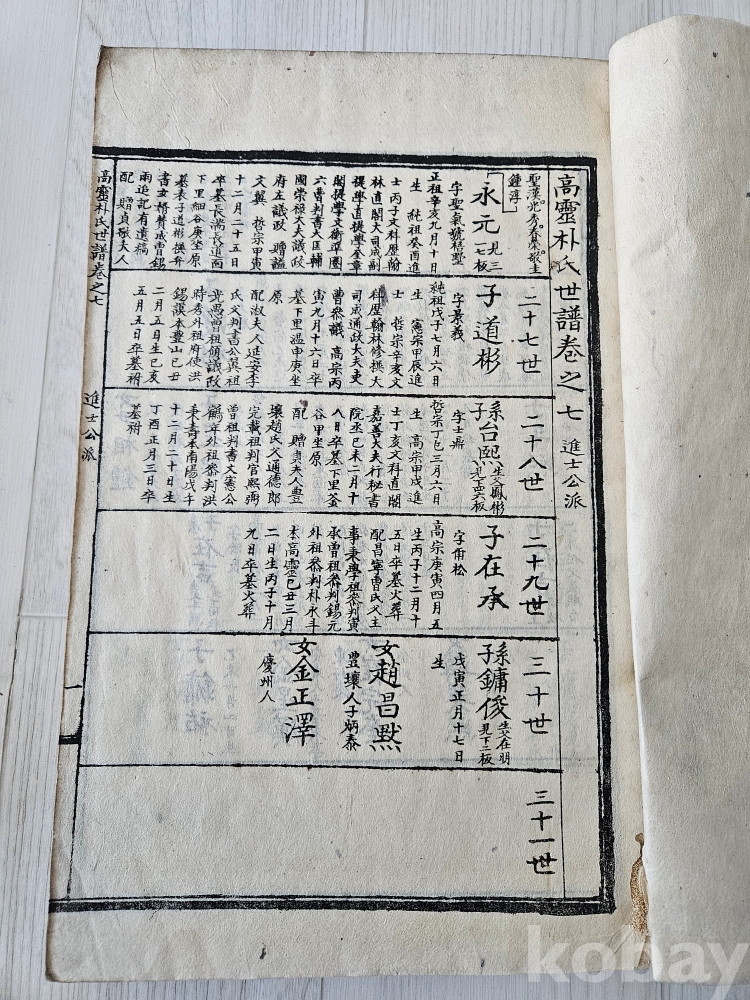 高靈朴氏世譜卷之七 進士公派
二十七世
二十八世
二十九世
三十世
三十一世
聖漢 光秀 春榮 敬圭
鍾淳
永元 見三七板
字聖氣號梧墅
正祖辛亥九月十日
生 純祖癸酉進
士丙子文科歷翰
林直閣大司成副
提學直提學奎章
閣提學文衡準圈
六曹判書大匡輔
國崇祿大夫議政
府左議政 贈謚
文翼 哲宗甲寅
十二月二十五日
卒墓長湍長道面
下里細谷庚坐原
墓表子道彬撰幷
書女婿贊成曺錫
雨追記有遺稿
配 贈貞敬夫人
子道彬
字景義
純祖戊子七月六日
生 憲宗甲辰進
士 哲宗辛亥文
科歷翰林修撰大
司成通政大夫吏
曹參議 高宗丙
寅九月十六日卒
墓下里溫申庚坐
原
配淑夫人延安李
氏父判書公翼祖
光愚曾祖領議政
時秀外祖府使洪
錫謨本豊山己丑
二月五日生己亥
五月五日卒墓祔
孫台熙 生父鳳彬見下四六板
字士鼎
哲宗丁巳三月六日
生 高宗甲戌進
士丁亥文科直閣
嘉善大夫行秘書
院丞己未二月十
八日卒墓下里釜
谷甲坐原
配 贈貞夫人豊
壤趙氏父通德郎
完載祖判官熙弼
曾祖判書文憲公
鶴年外祖參判洪
秉書本南陽戊午
十二月二十日生
丁酉正月三日卒
墓祔
子在承
字甫松
高宗庚寅四月五
生丙子十二月十
五日卒墓火葬
配昌寧曺氏父主
事秉學祖參判寅
承曾祖參判錫元
外祖參判朴永斗
本高靈己丑三月
二日生丙子十月
九日卒墓火葬
孫鏞俊 生父在明見下二板
戊寅正月十七日
生
女趙昌默
豊壤人子炳泰
女金正澤
慶州人
高靈朴氏世譜卷之七 進士公派 一
kobay